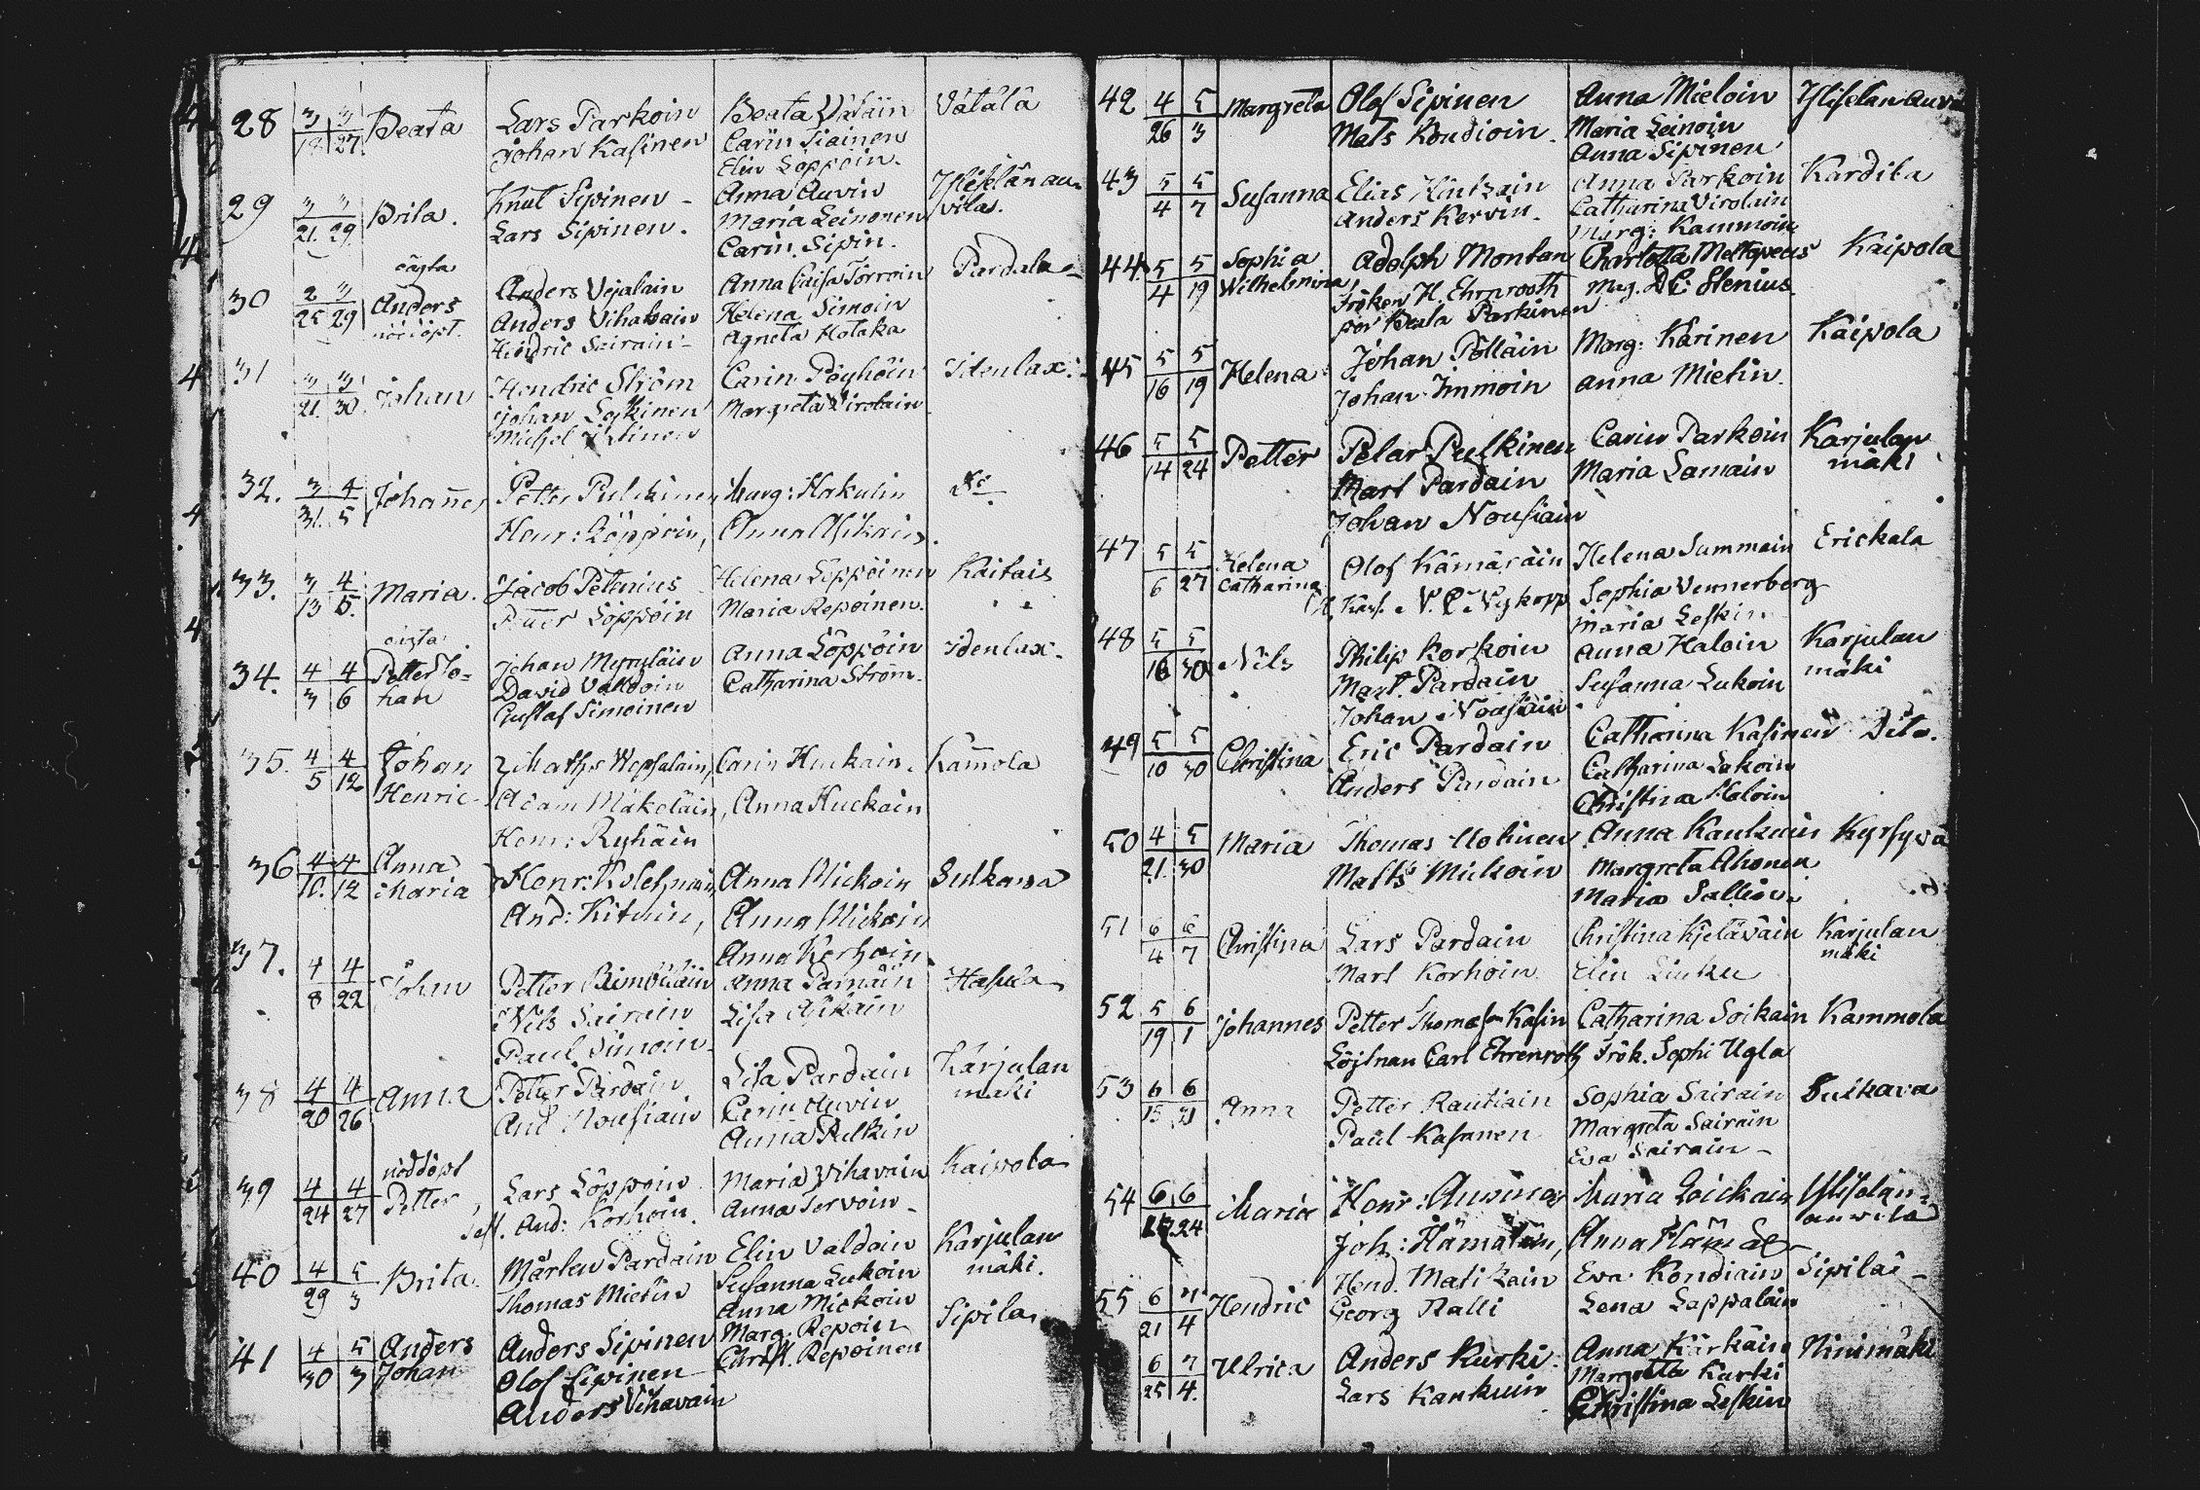 28 3/18 3/27 Beata Lars Parkoin Beata Vätäin Vätälä
Johan Kasinen Carin Tiainen
Elin Löppöin.
29 3/21. 3/29. Brita. Knut Sipinen Anna Auvin Yliselän au-
Lars Sipinen. Maria Leinonen vila.
Carin Sipin.
30 2/25 3/29 oägta Anders nöddöpt. Anders Vejalain Anna Caisa Torroin Pardala
Anders Vihavain Helena Simoin
Hendric Sairain Agneta Hotaka
31 3/21. 3/30. Johan Hendric Ström Carin Pöyhöin Idenlax
Johan Leskinen Margreta Virolain
Michel
32. 3/31. 4/5 Johannes Petter Pulckinen Marg: Hakulin
Henr: Löppöin, Anna Asikain.
33. 3/13 4/5. Maria. Jacob Petenius Helena Löppöinen Kaitais
Löppöin Maria Repoinen.
34. 4/3 4/6 oägta Petter Jo=han Johan Myryläin Anna Löppöin Idenlax.
David Valdoin Catharina Ström.
Gustaf Simoinen
35. 4/5 4/12 Johan Henric Maths Wepsalain, Carin Huckain. Kam̄ola
Adam Mäkeläin, Anna Huckain
Henr: Ryhäin
36 4/10. 4/12 Anna Maria Henr: Kolehmain, Anna Mickoin Sulkawa
And: Kituin, Anna Mickoin
Anna Korhoin.
37. 4/8 4/22 Johan Petter Anna Parnäin Hasula
Nils Sairain Lisa Asikain
Paul Simoin
38 4/20 4/26 Anna Petter Pardain Lisa Pardain Karjulan
And Nousiain Carin Auvin mäki
Anna Pulkin
39 4/24 4/27 nöddöpt Petter Lars Löppöin Maria Vihavain Kaipola
And: Korhoin. Anna Tervoin
40 4/29 5/3 Brita. Mårten Pardain Elin Valdoin Karjulan
Thomas Mietin Susanna Lukoin mäki.
Anna Mickoin
41 4/30 5/3 Anders Johan Anders Sipinen Marg. Repoin Sipila
Olof Sipinen Christ. Repoinen
Anders Vihavain
42 4/26 5/3 Margreta Olof Sipinen Anna Mieloin Yliselan Auv
Mats Kondioin. Maria Leinoin
Anna Sipinen
43 5/4 5/7 Susanna Elias Hintzain Anna Parkoin Kardila
Anders Kervin. Catharina Virolain
Marg: Kammoin
44. 5/4 5/19 Sophia Wilhelmina, Adolph Montan Charlotta Kaipola
Fröken H. Ehrnrooth Mag. Stenius.
Beata Parkinen
45 5/16 5/19 Helena Johan Pölläin Marg: Karinen Kaipola
Johan Immoin Anna Mietin.
46 5/14 5/24 Petter Petar Pulkinen Carin Parkoin Karjulan
Mart Pardain Maria Lamain mäki
Johan Nousiain
47 5/6 5/27 Helena Catharina Olof Kämäräin Helena Summain Erickala
Nykopp Sophia Vennerberg
Maria Leskin
48 5/16 5/30 Nils Philip Korkoin Anna Haloin Karjulan
Mart. Pardain Susanna Lukoin mäki
Johan Nousiain
49 5/10 5/30 Christina Eric Pardain Catharina Kasinen Dito.
Anders Pardain Catharina Lukoin
Christina Haloin
50 4/21. 5/30 Maria Thomas Anna Kankuin Kyrsyvä
Matts Mickoin Margreta Ahonen
Maria
51 6/4 6/7 Christina Lars Pardain Christina Kjetäväin Karjulan
Mart Korhoin Elin mäki
52 5/19 6/1 Johannes Petter Thomasson Kasin Catharina Soikain Kammola
Löjtnan Carl Ehrenroth Frök. Sophi Ugla
53 6/15 6/21 Anna Petter Rautiain Sophia Sairain Sulkava
Paul Kasanen Margreta Sairain
Eva Sairain
54 6/17 6/24 Maria Henr: Auvinen Maria Loickain Ylisälän=
Joh: Hämäläin, Anna Hämäl auvila
55 6/21 7/4 Hendric Hend. Matikain Eva Kondiain Sipilä
Georg Ralli Lena Lappalain
6/25 7/4. Ulrica Anders Kurki Anna Kärkäin Ninimäki
Lars Kankuin Margreta Kurki
Christina Leskin